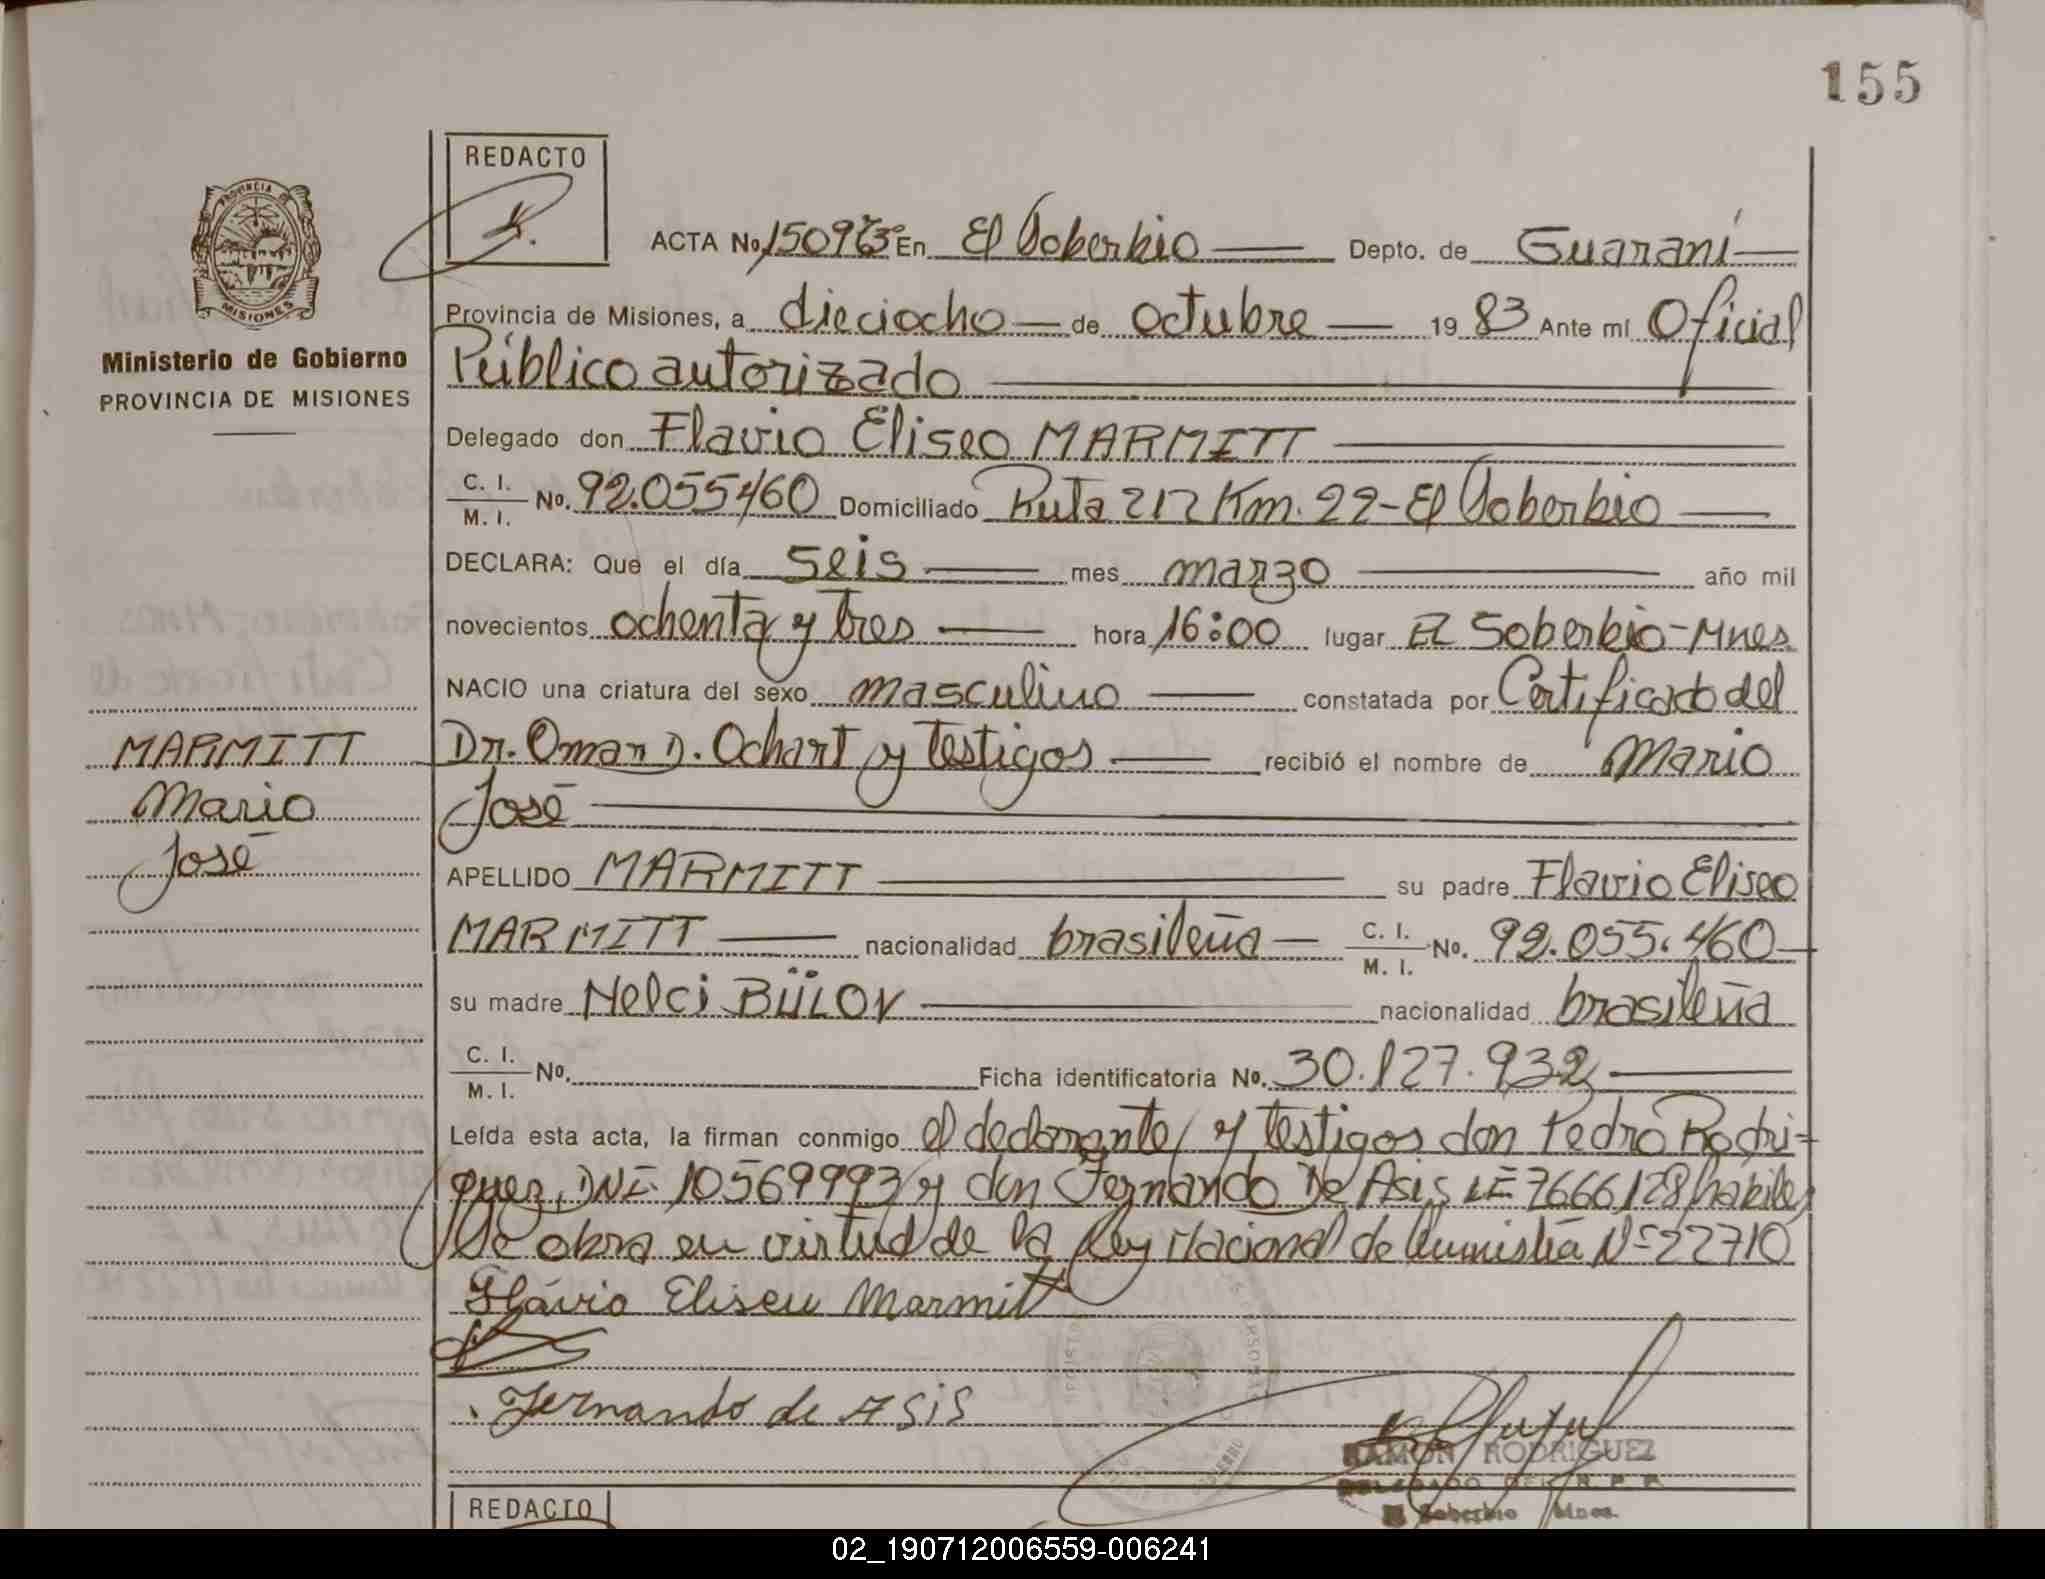 155
REDACTO
PROVINCIA DE
MISIONES
Ministerio de Gobierno
PROVINCIA DE MISIONES
ACTA No, En El Soberbio Depto. de Guaraní
Provincia de Misiones, a dieciocho de octubre 19 83 Ante mí Oficial
Público autorizado
Delegado don Flavio Eliseo MARMITT
C. I. / M. I. No. 92.055460 Domiciliado Ruta 212 Km. 22-El Soberbio
DECLARA: Que el día seis mes marzo año mil
novecientos ochenta y tres hora 16:00 lugar El Soberbio-Mnes
NACIO una criatura del sexo masculino constatada por Certificado del
Dr. Omar D. Ochart y testigos recibió el nombre de Mario
José
MARMITT
Mario
José
APELLIDO MARMITT su padre Flavio Eliseo
MARMITT nacionalidad brasileña C. I. / M. I. No. 92.055.460
su madre Nelci BÜLOV nacionalidad brasileña
C. I. / M. I. No. Ficha identificatoria No. 30.127.932
Leída esta acta, la firman conmigo el declarante y testigos don Pedro Rodri-
guez, DNI. 10569993 y don Fernando De Asis LE 7666128 habiles
Se obra en virtud de la Ley Nacional de Amnistía Nº 22710
Flávio Eliseu Marmitt
Fernando de Asis
RAMON RODRIGUEZ
DELEGADO DEL R. P. P.
El Soberbio Mnes.
REDACTO
02_190712006559-006241